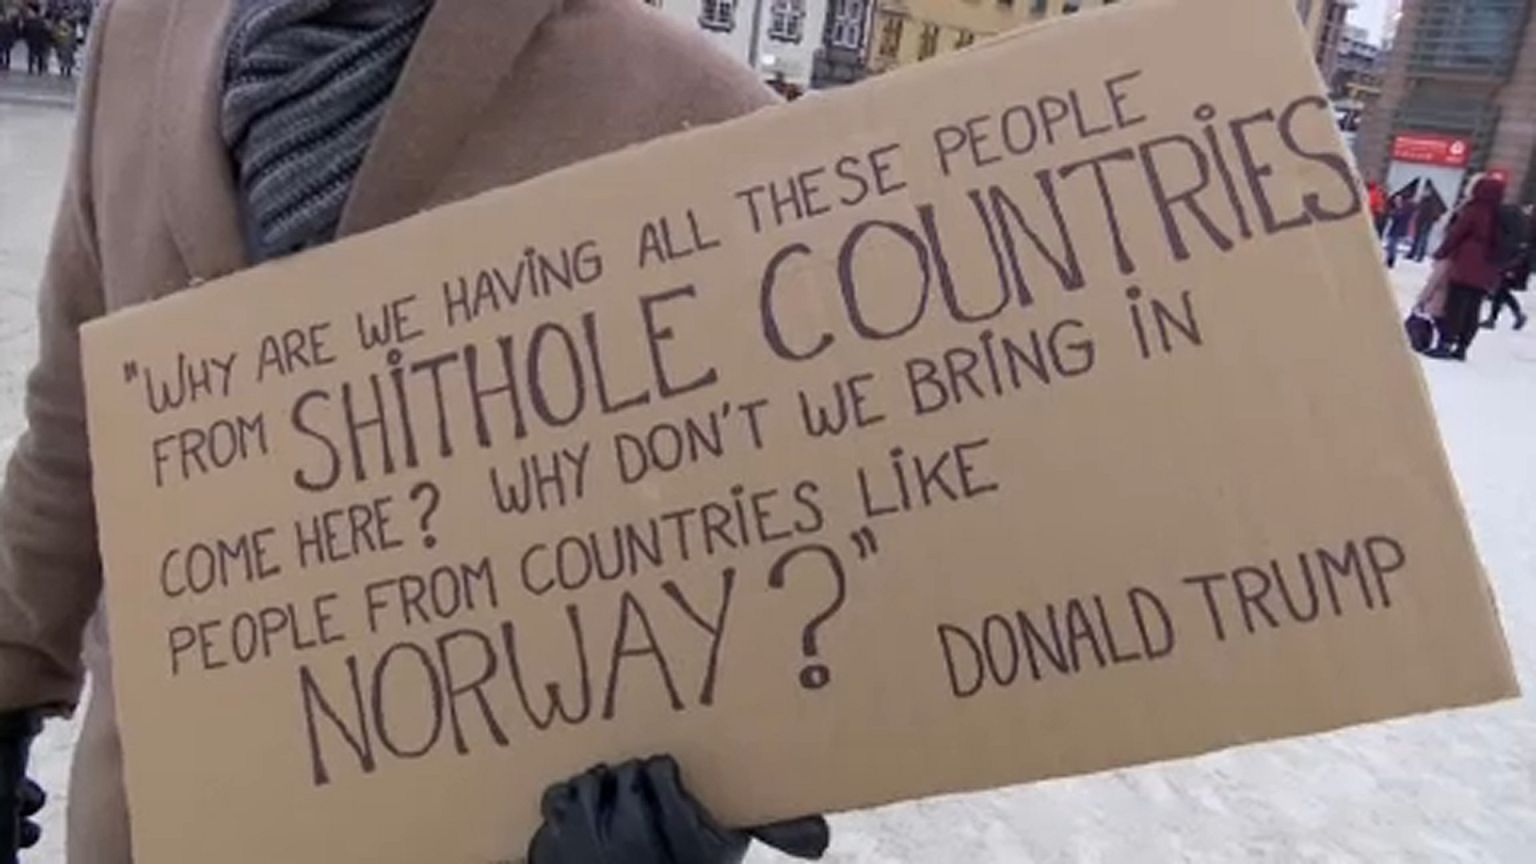 "WHY ARE WE HAVING ALL THESE PEOPLE
FROM SHITHOLE COUNTRIES
COME HERE? WHY DON'T WE BRING IN
PEOPLE FROM COUNTRIES LIKE
NORWAY?"
DONALD TRUMP